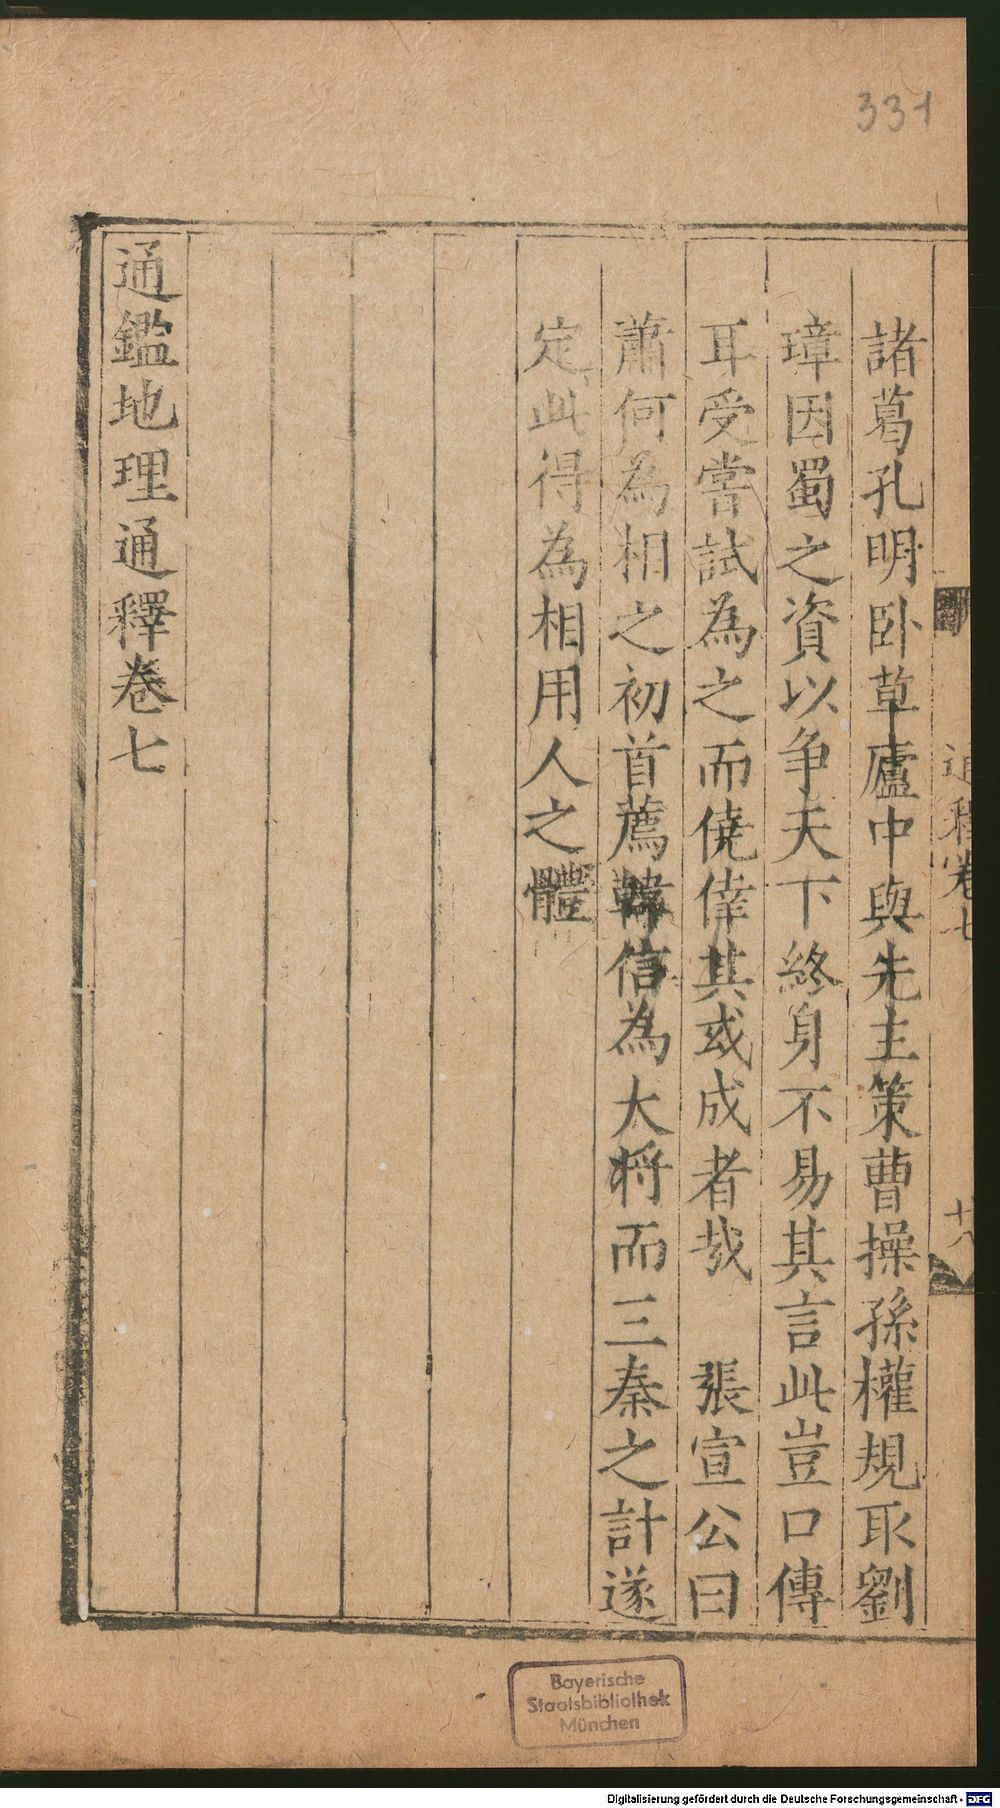 331
通釋卷七
十八
諸葛孔明卧草廬中與先主策曹操孫權規取劉
璋因蜀之資以争天下終身不易其言此豈口傳
耳受嘗試為之而僥倖其或成者㦲　張宣公曰
蕭何為相之初首薦韓信為大将而三秦之計遂
定此得為相用人之體
通鑑地理通釋卷七
Bayerische
Staatsbibliothek
München
Digitalisierung gefördert durch die Deutsche Forschungsgemeinschaft - DFG